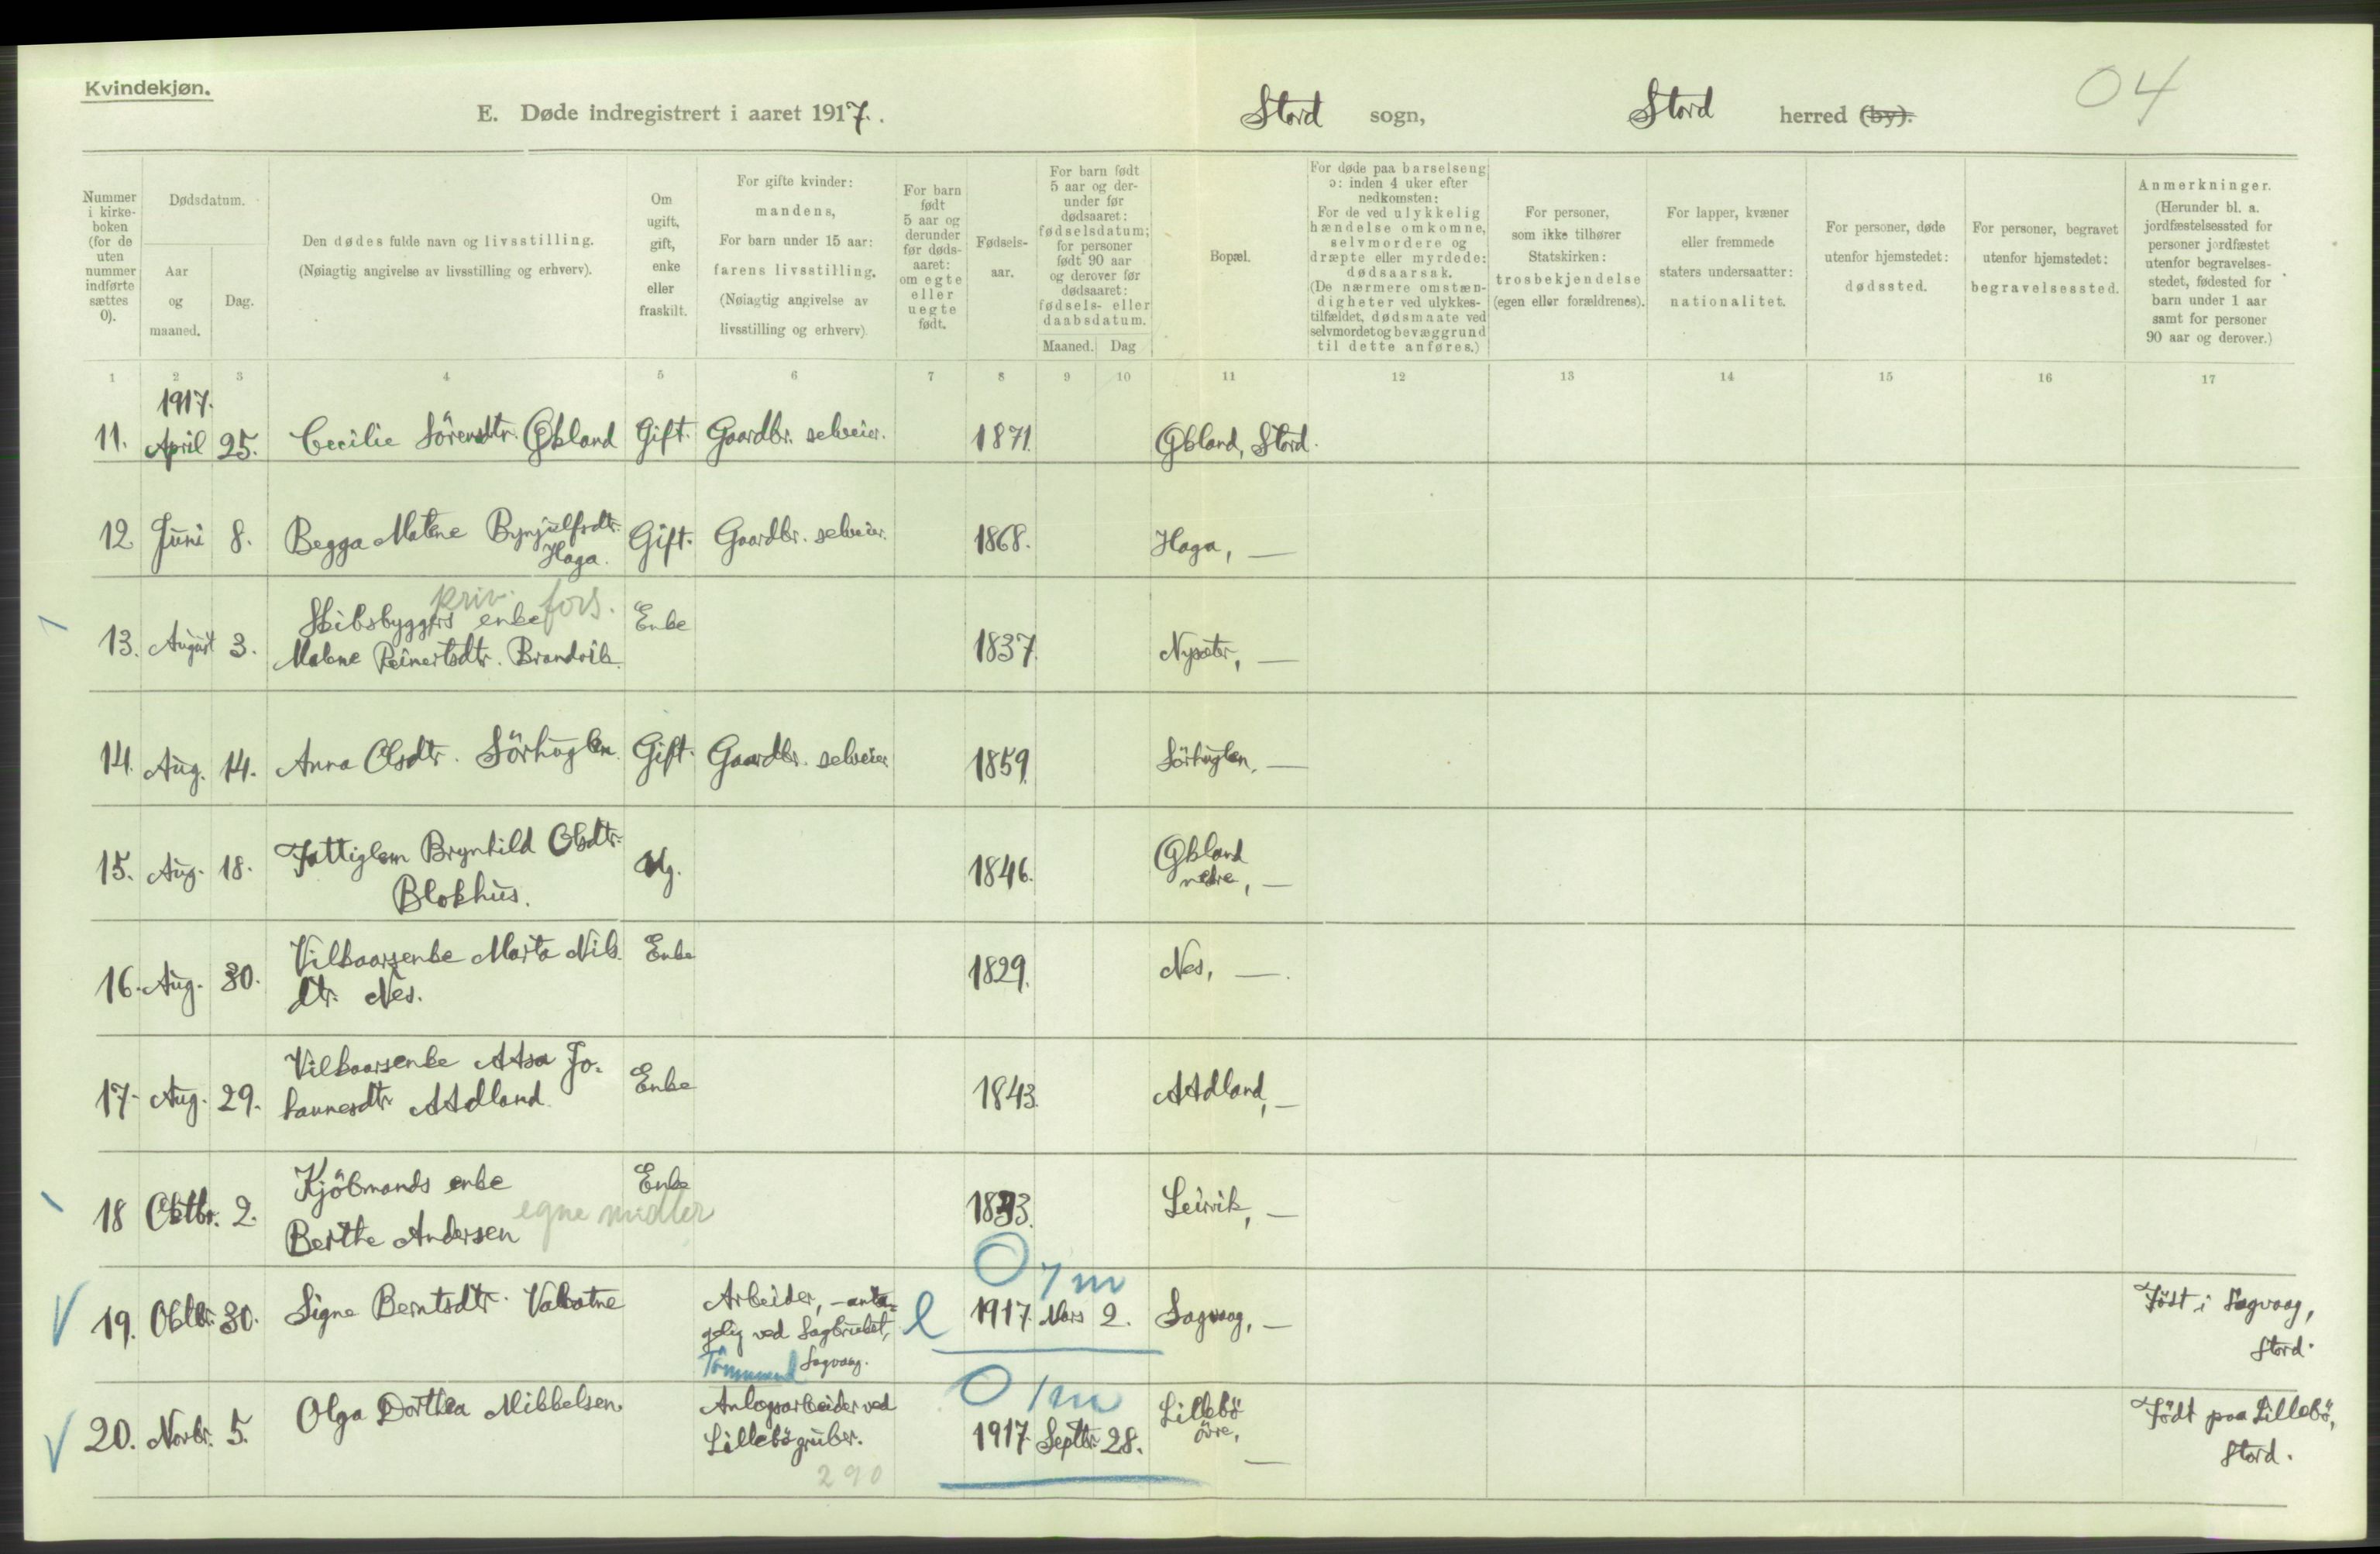 Kvindekjøn.
E. Døde indregistrert i aaret 1917.
Stord sogn,
Stord herred (by).
04
Nummer i kirke-boken (for de uten nummer indførte sættes 0).
Dødsdatum.
Aar og maaned.
Dag.
Den dødes fulde navn og livsstilling.
(Nøiagtig angivelse av livsstilling og erhverv).
Om ugift, gift, enke eller fraskilt.
For gifte kvinder:
mandens,
For barn under 15 aar:
farens livsstilling.
(Nøiagtig angivelse av
livsstilling og erhverv)
For barn født 5 aar og derunder før døds-aaret: om egte eller uegte født.
Fødsels-aar.
For barn født 5 aar og der-under før dødsaaret: fødselsdatum; for personer født 90 aar og derover før dødsaaret: fødsels- eller daabsdatum.
Maaned. Dag
Bopæl.
For døde paa barselseng
ɔ: inden 4 uker efter
nedkomsten:
For de ved ulykkelig
hændelse omkomne,
selvmordere og
dræpte eller myrdede:
dødsaarsak.
(De nærmere omstæn-
digheter ved ulykkes-
tilfældet, dødsmaate ved
selvmordet og bevæggrund
til dette anføres.)
For personer,
som ikke tilhører
Statskirken:
trosbekjendelse
(egen eller forældrenes).
For lapper, kvæner
eller fremmede
staters undersaatter:
nationalitet.
For personer, døde
utenfor hjemstedet:
dødssted.
For personer, begravet
utenfor hjemstedet:
begravelsessted.
Anmerkninger.
(Herunder bl. a.
jordfæstelsessted for
personer jordfæstet
utenfor begravelses-
stedet, fødested for
barn under 1 aar
samt for personer
90 aar og derover.)
1 2 3 4 5 6 7 8 9 10 11 12 13 14 15 16 17
1917.
11. April 25. Cecilie Sörensdtr. Økland Gift. Gaardbr. selveier. 1871. Økland, Stord.
12. Juni 8. Begga Malene Bynjulfsdtr. Haga. Gift. Gaardbr. selveier. 1868. Haga, —
priv. fors.
13. August 3. Skibsbyggers enke Malene Reinertsdtr. Brandvik. Enke 1837. Nysæter, —
14. Aug. 14. Anna Olsdtr. Sörhuglen. Gift. Gaardbr. selveier 1859. Sörhuglen, —
15. Aug. 18. Fattiglem Brynhild Olsdtr. Blokhus. Ug. 1846. Økland nedre, —
16. Aug. 30. Vilkaarsenke Marta Nils dtr. Nes. Enke 1829. Nes, —
17. Aug. 29. Vilkaarsenke Aasa Jo- hannesdtr. Aadland. Enke 1843. Aadland, —
18 Oktbr. 2. Kjöbmands enke Berthe Andersen Enke 1833. Leirvik, —
egne midler
0 7 m
19. Oktbr. 30. Signe Berntsdtr. Valvatne Arbeider, - anta- gelig ved Sagbruket, Sagvaag. l 1917. Mars 2. Sagvaag, — Födt i Sagvaag, Stord.
Tömmermand
0 1 m
20. Novbr. 5. Olga Dorthea Mikkelsen. Anlegsarbeider ved Lillebö gruber. 1917. Septbr. 28. Lillebö övre, — Födt paa Lillebö, Stord.
290